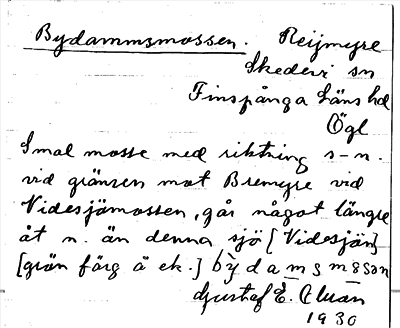 Bydammsmossen. Reijmyre
Skedevi sn
Finspånga Läns hd
Ögl
Smal mosse med riktning s-n.
vid gränsen mot Bremyre vid
Videsjömossen, går något längre
åt n. än denna sjö [Videsjön]
[grön färg å ek.] bỳdamsmåsan
Gustaf E.
1930